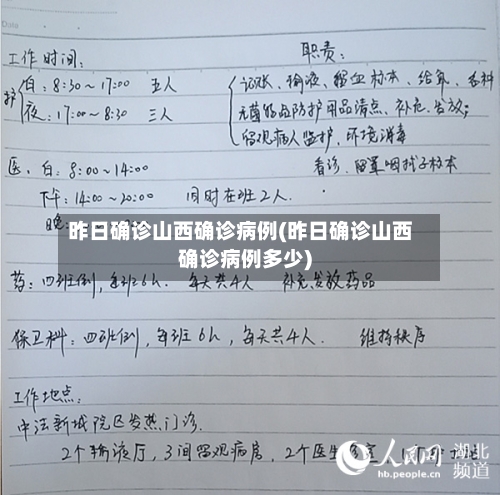 Date
工作时间：
职责：
护 白：8:30～17:00 五人
夜：17:00～8:30 三人
记账、输液、留血标本、给氧、各种
无菌物品防护用品清点、补充、发放；
留观病人监护，环境消毒
医、白：8:00～14:00
看诊、留置咽拭子标本
下午：14:00～20:00 同时在班2人.
晚：
昨日确诊山西确诊病例(昨日确诊山西
确诊病例多少)
药：四班倒，每班6h. 每天共4人 补充发放药品
保卫科：四班倒，每班6h，每天共4人. 维持秩序
工作地点：
中法新城院区发热门诊.
2个输液厅，3间留观病房，2个医生诊室，1个
人民网 湖北
hb.people.cn 频道